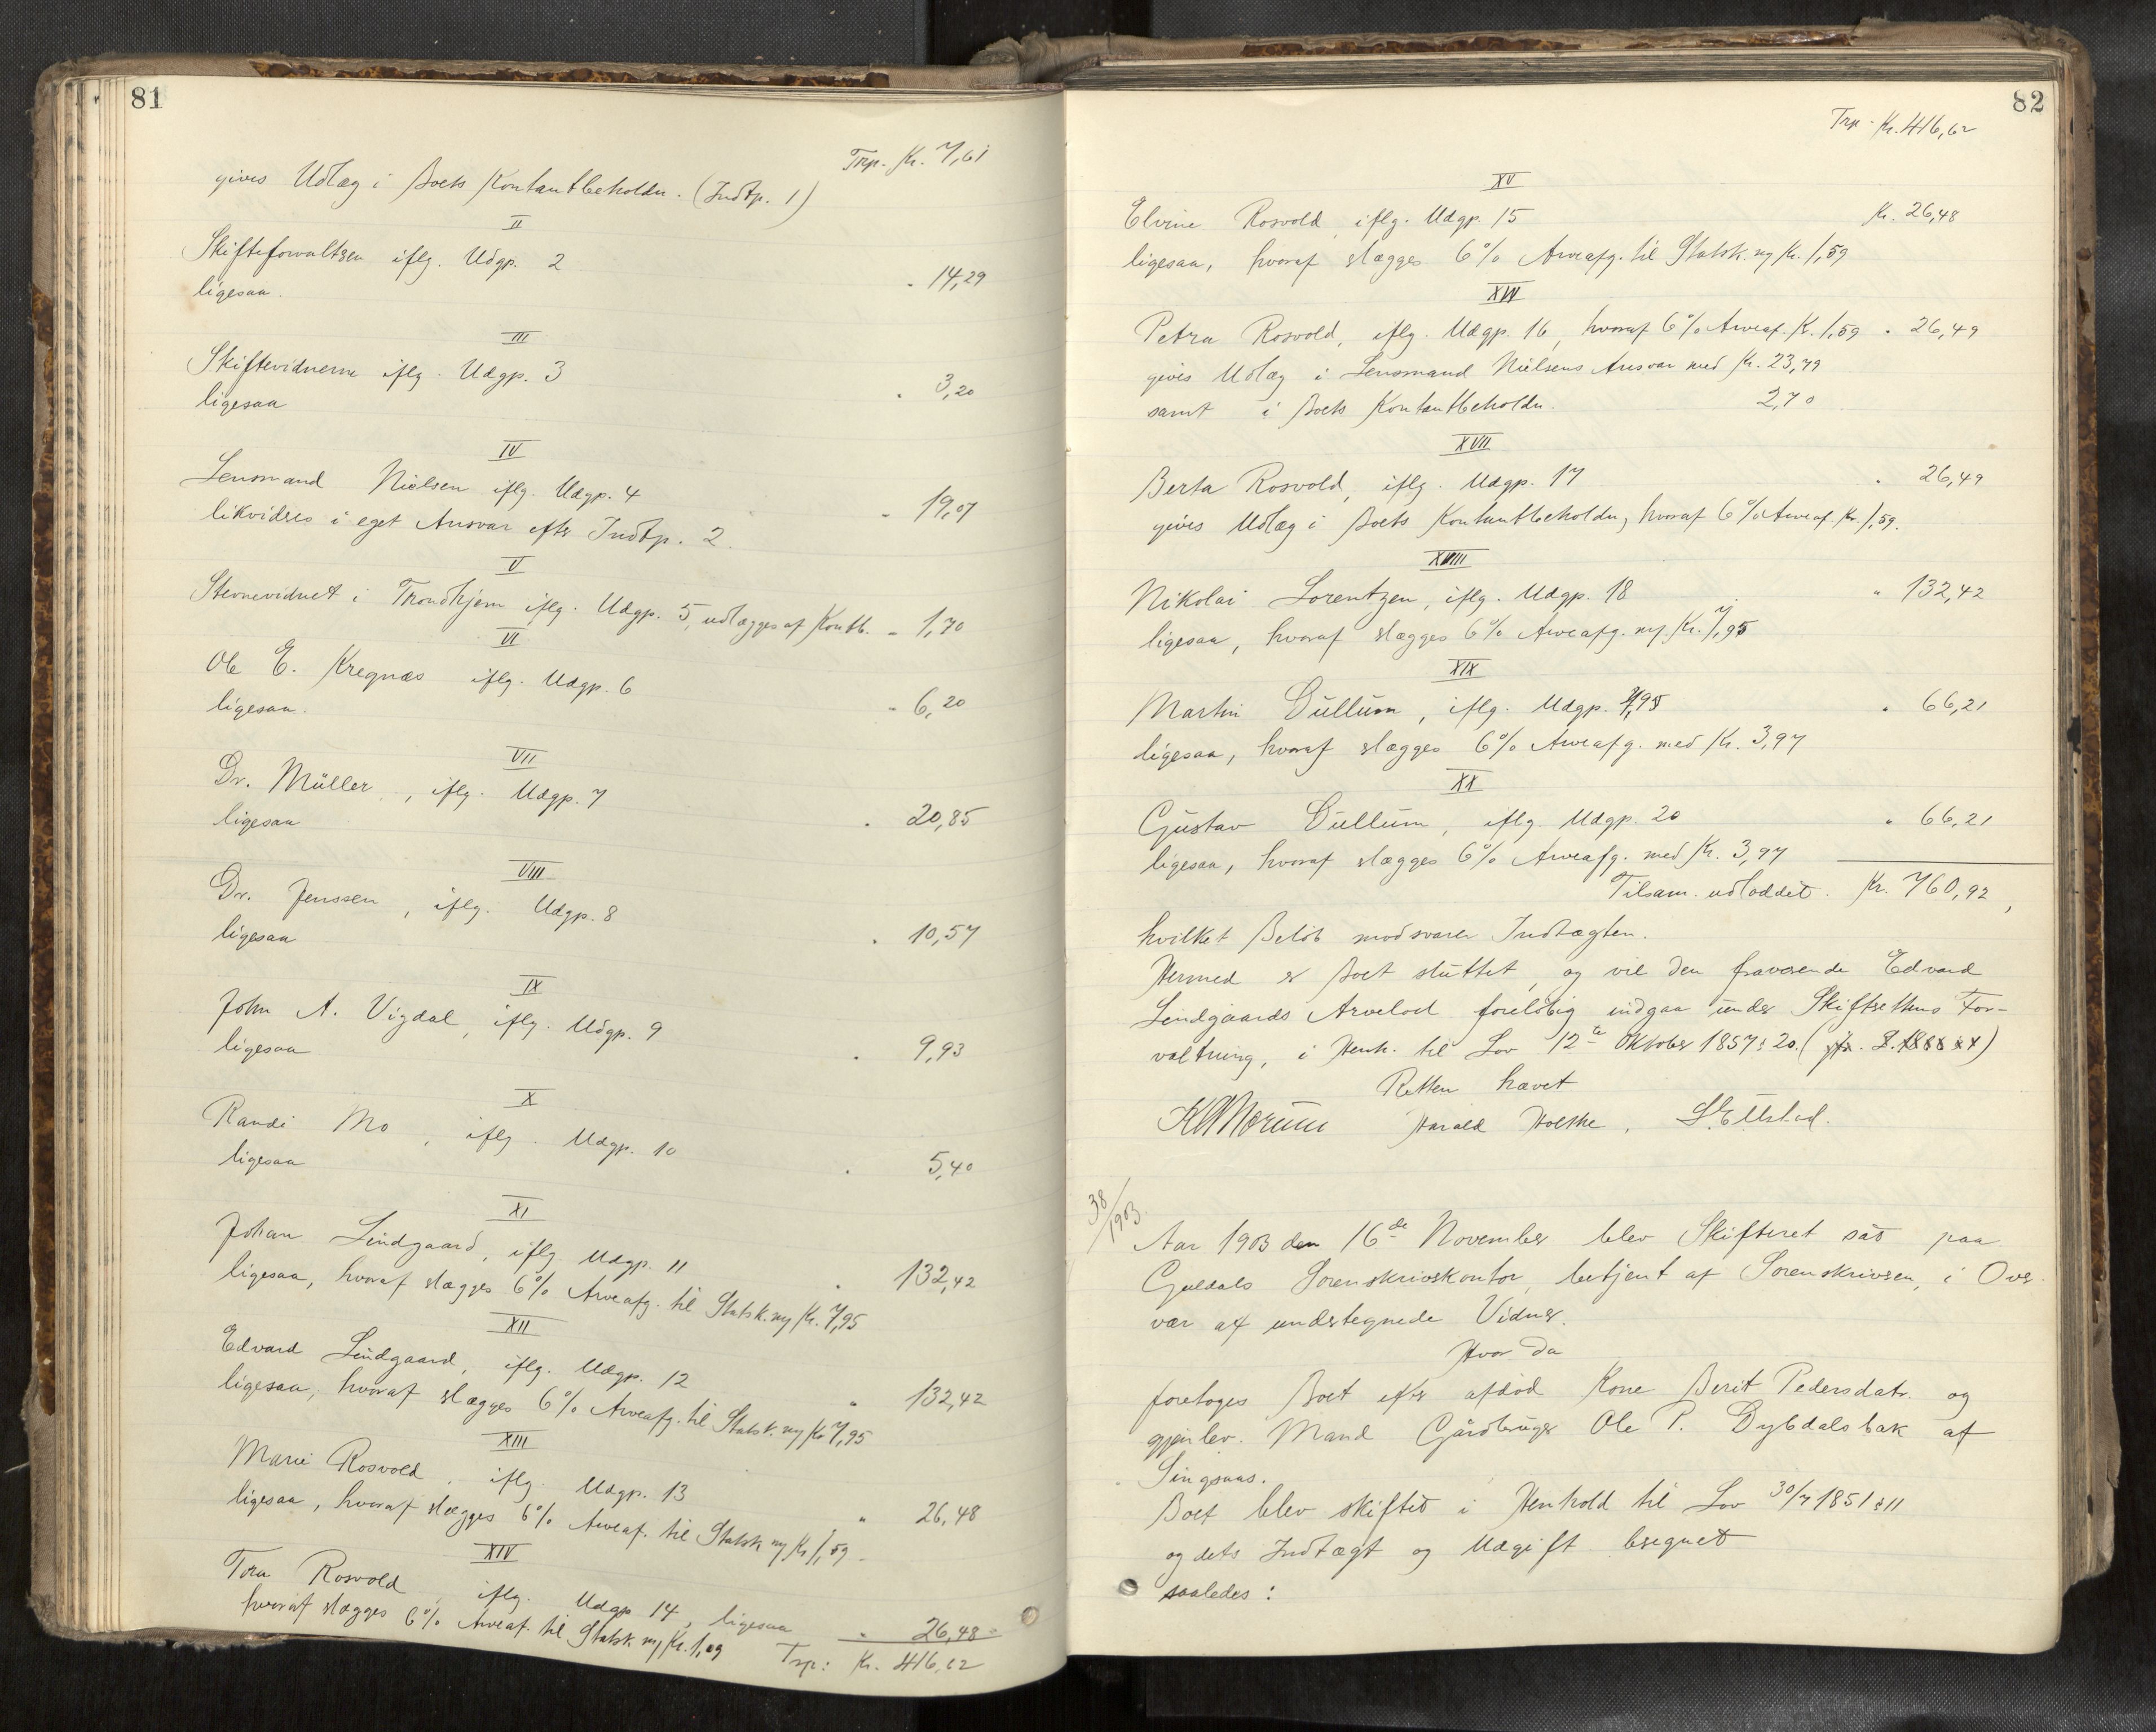 81
Trp. Kr. 7,61
gives Udlæg i Boets Kontantbeholdn. (Indtp. 1)
II
Skifteforvaltren iflg. Udgp. 2
ligesaa. - 14,29
III
Skiftevidnerne iflg. Udgp. 3
ligesaa - 3,20
IV
Lensmand Nielsen iflg. Udgp. 4 - 19,07
likvidres i eget Ansvar efter Indtp. 2.
V
Stevnevidnet i Trondhjem iflg. Udgp. 5, udlægges af Kontb. - 1,70
VI
Ole E. Kregnæs iflg. Udgp. 6
ligesaa. - 6,20
VII
Dr. Müller, iflg. Udgp. 7
ligesaa - 20,85
VIII
Dr. Jenssen, iflg. Udgp. 8
ligesaa - 10,57
IX
John A. Vigdal, iflg. Udgp. 9
ligesaa - 9,93
X
Randi Mo, iflg. Udgp. 10
ligesaa - 5,40
XI
Johan Lindgaard, iflg. Udgp. 11 - 132,42
ligesaa, hvoraf erlægges 6% Arveafg. til Statsk. m/ Kr. 7,95
XII
Edvard Lindgaard, iflg. Udgp. 12 " 132,42
ligesaa, hvoraf erlægges 6% Arveafg. til Statsk. m/ Kr. 7,95
XIII
Marie Rosvold, iflg. Udgp. 13 " 26,48
ligesaa, hvoraf erlægges 6% Arveaf. til Statsk m/ Kr. 1,59
XIV
Tora Rosvold, iflg. Udgp 14, ligesaa " 26,48
hvoraf erlægges 6% Arveaf. til Statsk m/ Kr. 1,59
Trp: Kr. 416,62
82
Trp. Kr. 416,62
XV
Elvine Rosvold, iflg. Udgp. 15 Kr. 26,48
ligesaa, hvoraf erlægges 6% Arveafg. til Statsk. m/ Kr. 1,59
XVI
Petra Rosvold, iflg. Udgp. 16, hvoraf 6% Arveaf. Kr. 1,59 - 26,49
gives Udlæg i Lensmand Nielsens Ansvar med Kr. 23,79
samt i Boets Kontantbeholdn. 2,70
XVII
Berta Rosvold, iflg. Udgp. 17 - 26,49
gives Udlæg i Boets Kontantbeholdn, hvoraf 6% Arveaf. Kr. 1,59.
XVIII
Nikolai Lorentzen, iflg. Udgp. 18 " 132,42
ligesaa, hvoraf erlægges 6% Arveafg. m/ Kr. 7,95
XIX
Martin Dullum, iflg. Udgp. - 66,21
ligesaa, hvoraf erlægges 6% Arveafg. med Kr. 3,97
XX
Gustav Dullum, iflg. Udgp. 20 " 66,21
ligesaa, hvoraf erlægges 6% Arveafg. med Kr. 3,97
Tilsam. udloddet. Kr. 760,92,
hvilket Beløb modsvarer Indtægten.
Hermed er Boet sluttet, og vil den fraværende Edvard
Lindgaards Arvelod foreløbig indgaa under Skifterettens For-
valtning, i Henh. til Lov 12te Oktober 1857 § 20.
Retten hævet
Harald Holthe,
38/1903.
Aar 1903 den 16de November blev Skifteret sat paa
Guldals Sorenskriverkontor, betjent af Sorenskriveren, i Over-
vær af undertegnede Vidner.
Hvor da
foretoges Boet efter afdød Kone Berit Pedersdatr. og
gjenlev. Mand Gårdbruger Ole P. Dybdalsbak af
Singsaas.
Boet blev skiftet i Henhold til Lov 30/7 1851 § 11
og dets Indtægt og Udgift beregnet
saaledes: